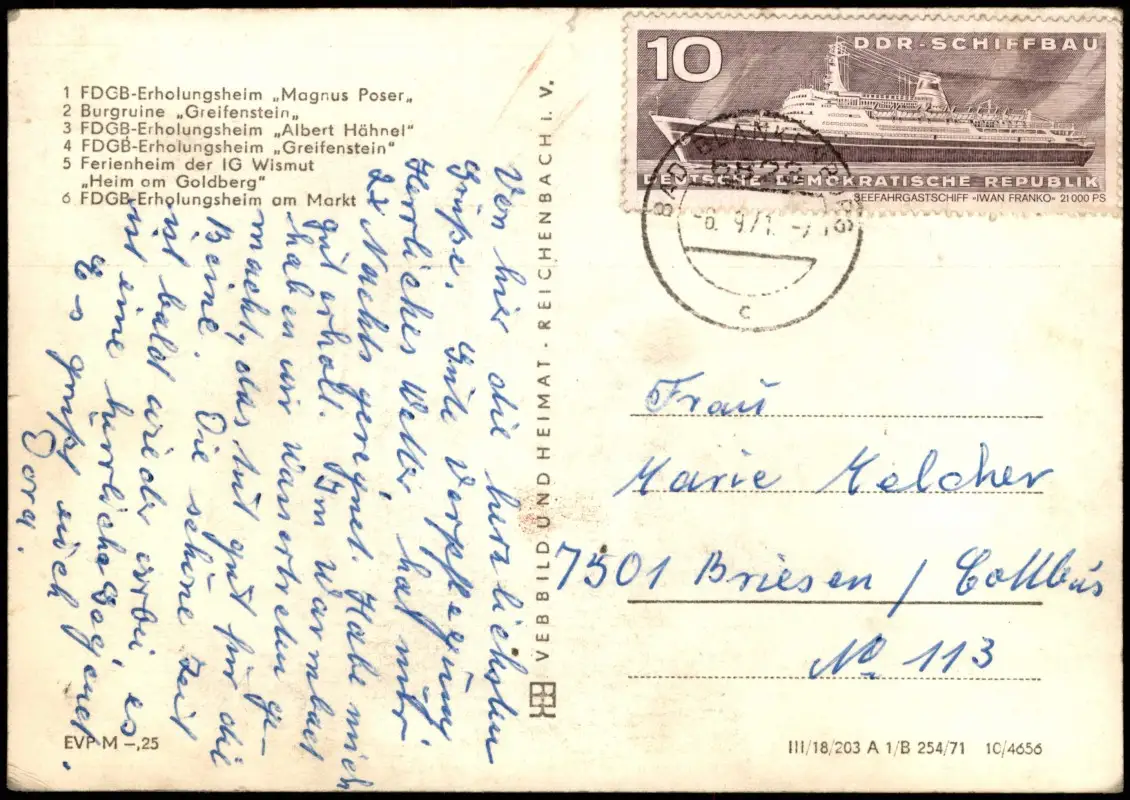 1 FDGB-Erholungsheim „Magnus Poser„
2 Burgruine „Greifenstein„
3 FDGB-Erholungsheim „Albert Hähnel"
4 FDGB-Erholungsheim „Greifenstein"
5 Ferienheim der IG Wismut
„Heim am Goldberg"
6 FDGB-Erholungsheim am Markt
Von hier die herzlichsten
Grüße. Gute Verpflegung,
Herrliches Wetter hat nur
2x Nachts geregnet. Habe mich
gut erholt. Im Warmbad
haben wir Wassertreten ge-
macht, das tut gut für die
Beine. Die schöne Zeit
ist bald wieder vorbei, es
ist eine herrliche Gegend.
Es grüßt euch
Dora.
EVP M –,25
VEB BILD UND HEIMAT - REICHENBACH i. V.
10
DDR-SCHIFFBAU
DEUTSCHE DEMOKRATISCHE REPUBLIK
SEEFAHRGASTSCHIFF »IWAN FRANKO« 21000 PS
BAD BLANKENBURG
-6. 9. 71. -7
c
Frau
Marie Melcher
7501 Briesen / Cottbus
No 113
III/18/203 A 1/B 254/71 10/4656